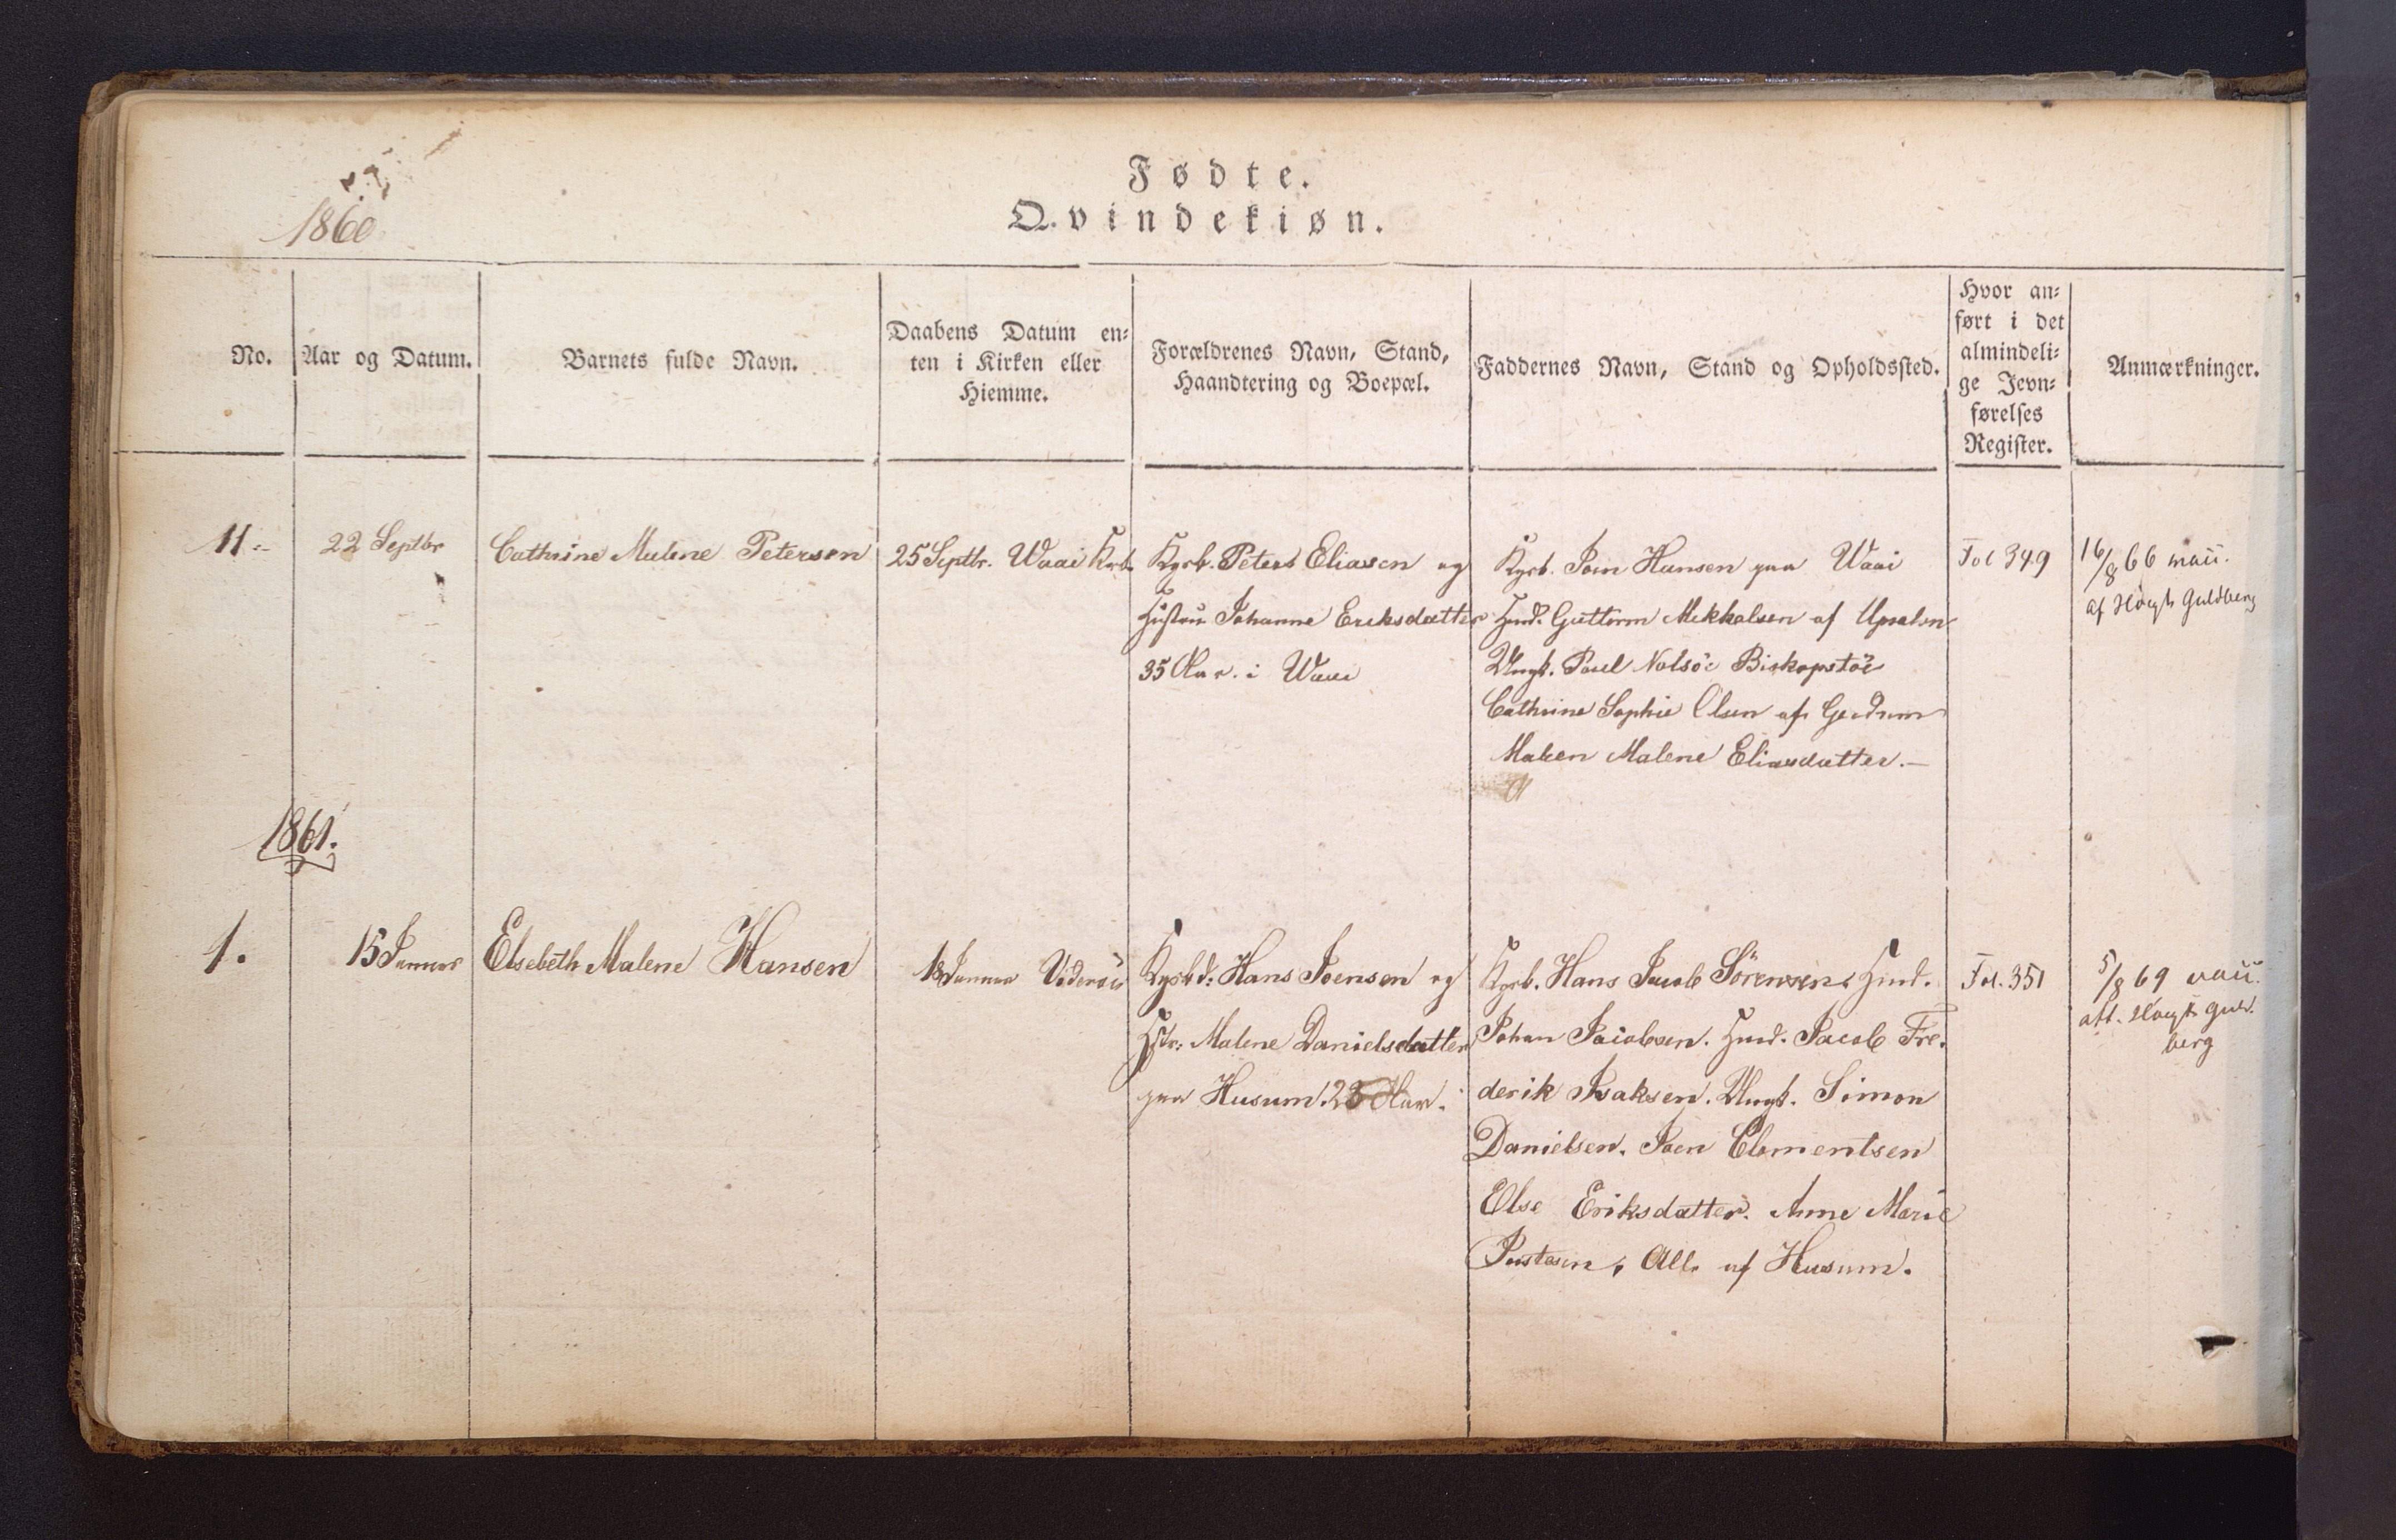 Fødte.
Qvindekiøn.
1860
No.
Aar og Datum.
Barnets fulde Navn.
Daabens Datum en-
ten i Kirken eller
Hiemme.
Forældrenes Navn, Stand,
Haandtering og Boepæl.
Faddernes Navn, Stand og Opholdssted.
Hvor an-
ført i det
almindeli-
ge Jevn-
førelses
Register.
Anmærkninger.
11.
22 Septbr
Cathrine Malene Petersen
25 Septbr. Waai
Kgsb. Peter Eliasen og
Hustru Johanne Eriksdatter
35 Aar. i Waai
Kgsb. Joen Hansen paa Waai
Huusd. Guttorm Mikkalsen af Upsalen
Ungk. Poul Nolsöe Biskopstöe
Cathrine Sophie Olsen af Gerdum
Maken Malene Eliasdatter.-
Fol 349
16/8 66 vacc.
af Høegh Guldberg
1861.
1.
15 Januar
Elsebeth Malene Hansen
18 Januar Videröe
Kgsbd: Hans Joensen og
Hstr: Malene Danielsdatter
paa Husum. 23 Aar.
Kgsb. Hans Jacob Sörensen. Huusd.
Johan Jacobsen. Huusd. Jacob Fre-
derik Isaksen. Ungk. Simon
Danielsen. Joen Clementsen
Else Eriksdatter. Anne Marie
Justesen, Alle af Husum.
Fol. 351
5/8 69 vacc.
att. Høegh Guld-
berg